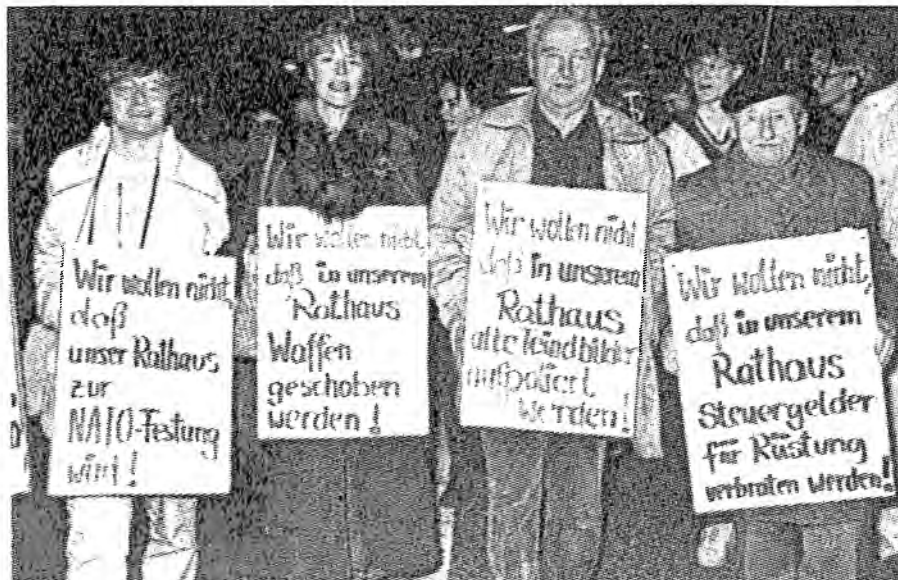 Wir wollen nicht,
daß
unser Rathaus
zur
NATO-Festung
wird!
Wir wollen nicht,
daß in unserem
Rathaus
Waffen
geschoben
werden!
Wir wollen nicht
daß in unserem
Rathaus
alte Feindbilder
aufpoliert
werden!
Wir wollen nicht,
daß in unserem
Rathaus
Steuergelder
für Rüstung
verbraten werden!